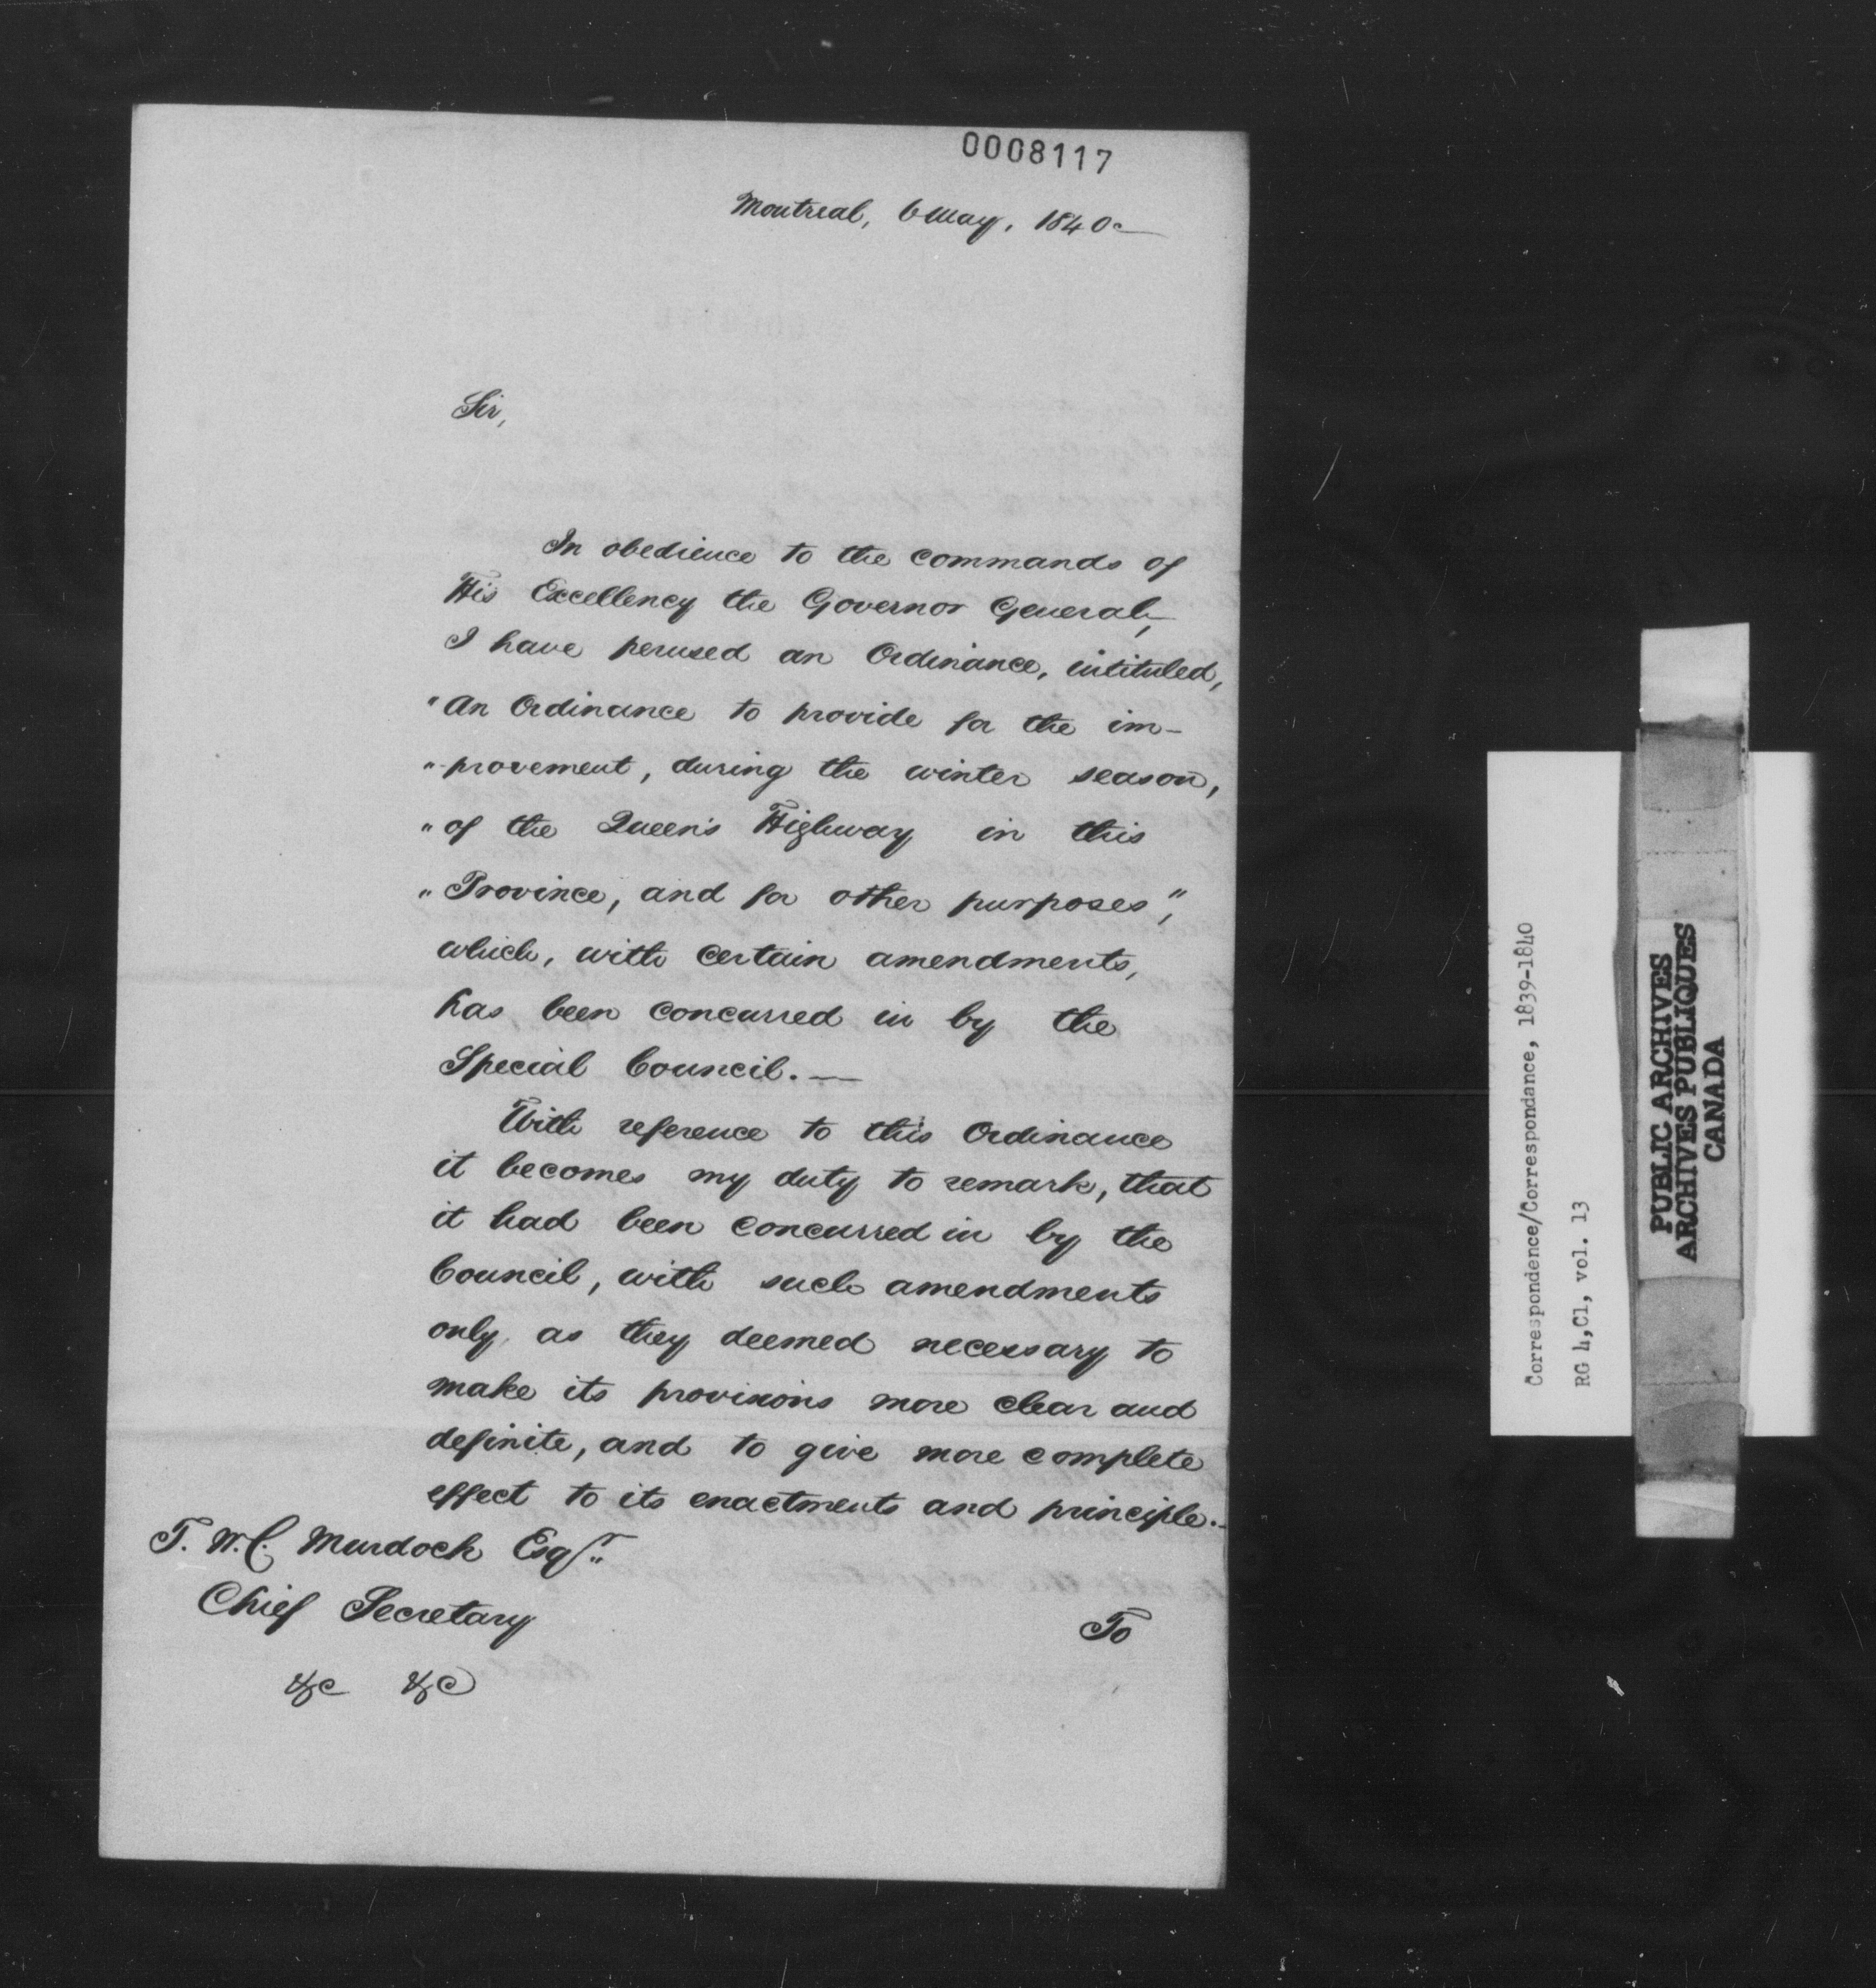 0008117
Montreal, 6 May, 1840
Sir,
In obedience to the commands of
His Excellency the Governor General,
I have perused an Ordinance, intituled,
"An Ordinance to provide for the im-
"-provement, during the winter season,
"of the Queen's Highway in this
"Province, and for other purposes",
which, with certain amendments,
has been concurred in by the
Special Council. —
With reference to this Ordinance
it becomes my duty to remark, that
it had been concurred in by the
Council, with such amendments
only, as they deemed necessary to
make its provisions more clear and
definite, and to give more complete
effect to its enactments and principle.-
T. W. C. Murdoch Esqr.
Chief Secretary
&c &c
To
Correspondence/Correspondance, 1839-1840
RG 4,C1, vol. 13
PUBLIC ARCHIVES
ARCHIVES PUBLIQUES
CANADA